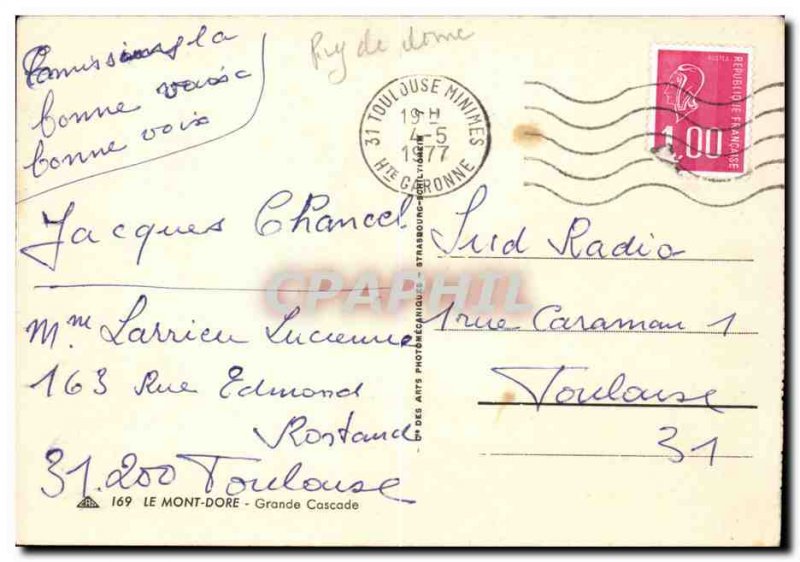 Puy de dome
émission la
bonne voix
bonne voix
Jacques Chancel
Mme Larrieu Lucienne
163 Rue Edmond
Rostand
31.200 Toulouse
169 LE MONT-DORE - Grande Cascade
31 TOULOUSE MINIMES
19 H
4-5
1977
HTE GARONNE
POSTES
REPUBLIQUE FRANÇAISE
1,00
Cie DES ARTS PHOTOMÉCANIQUES - STRASBOURG-SCHILTIGHEIM
CPAPHIL
Sud Radio
1 rue Caraman 1
Toulouse
31